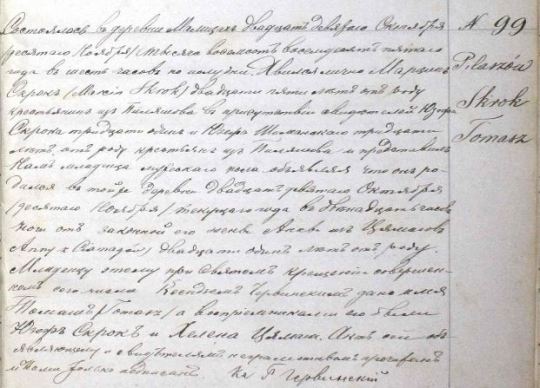 Состоялось въ деревни Малицехъ двадцать девятаго Октября
/десятаго Ноября/ тысяча восемьсотъ восемьдесятъ пятаго
года въ шесть часовъ по полудни. Явился лично Марцинъ
Скрокъ /Marcin Skrok/ двадцати пяти лѣтъ отъ роду
крестьянинъ изъ въ присутствіи свидѣтелей Юзефа
Скрока тридцати одинъ и Юзефа тридцати
лѣтъ отъ роду крестьянъ изъ и представилъ
Намъ младенца мужескаго пола объявляя что онъ ро-
дился въ той же деревни двадцать девятаго Октября
/десятаго Ноября/ текущаго года въ двенадцать часовъ
ночи отъ законной его жены Анны изъ Цямаговъ
Anny z двадцати одинъ лѣтъ отъ роду.
Младенцу этому при Святомъ крещеніи совершен-
номъ сего числа Ксендземъ Червинскимъ дано имя
Томашъ /Tomasz/ а воспріемниками его были
Юзефъ Скрокъ и Хелена Актъ сей объ-
являющему и свидѣтелямъ неграмотнымъ прочитанъ
и Нами только подписанъ. Кс Г Червинскій
N 99
Plaszów
Skrok
Tomasz